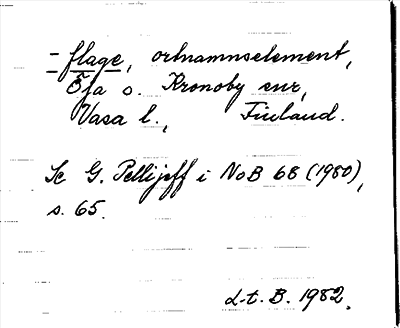 - flage, ortnamnselement,
Öja o. Kronoby snr,
Vasa l., Finland.
Se G. Pellijeff i NoB 68 (1980),
s. 65.
L-t. B. 1982.